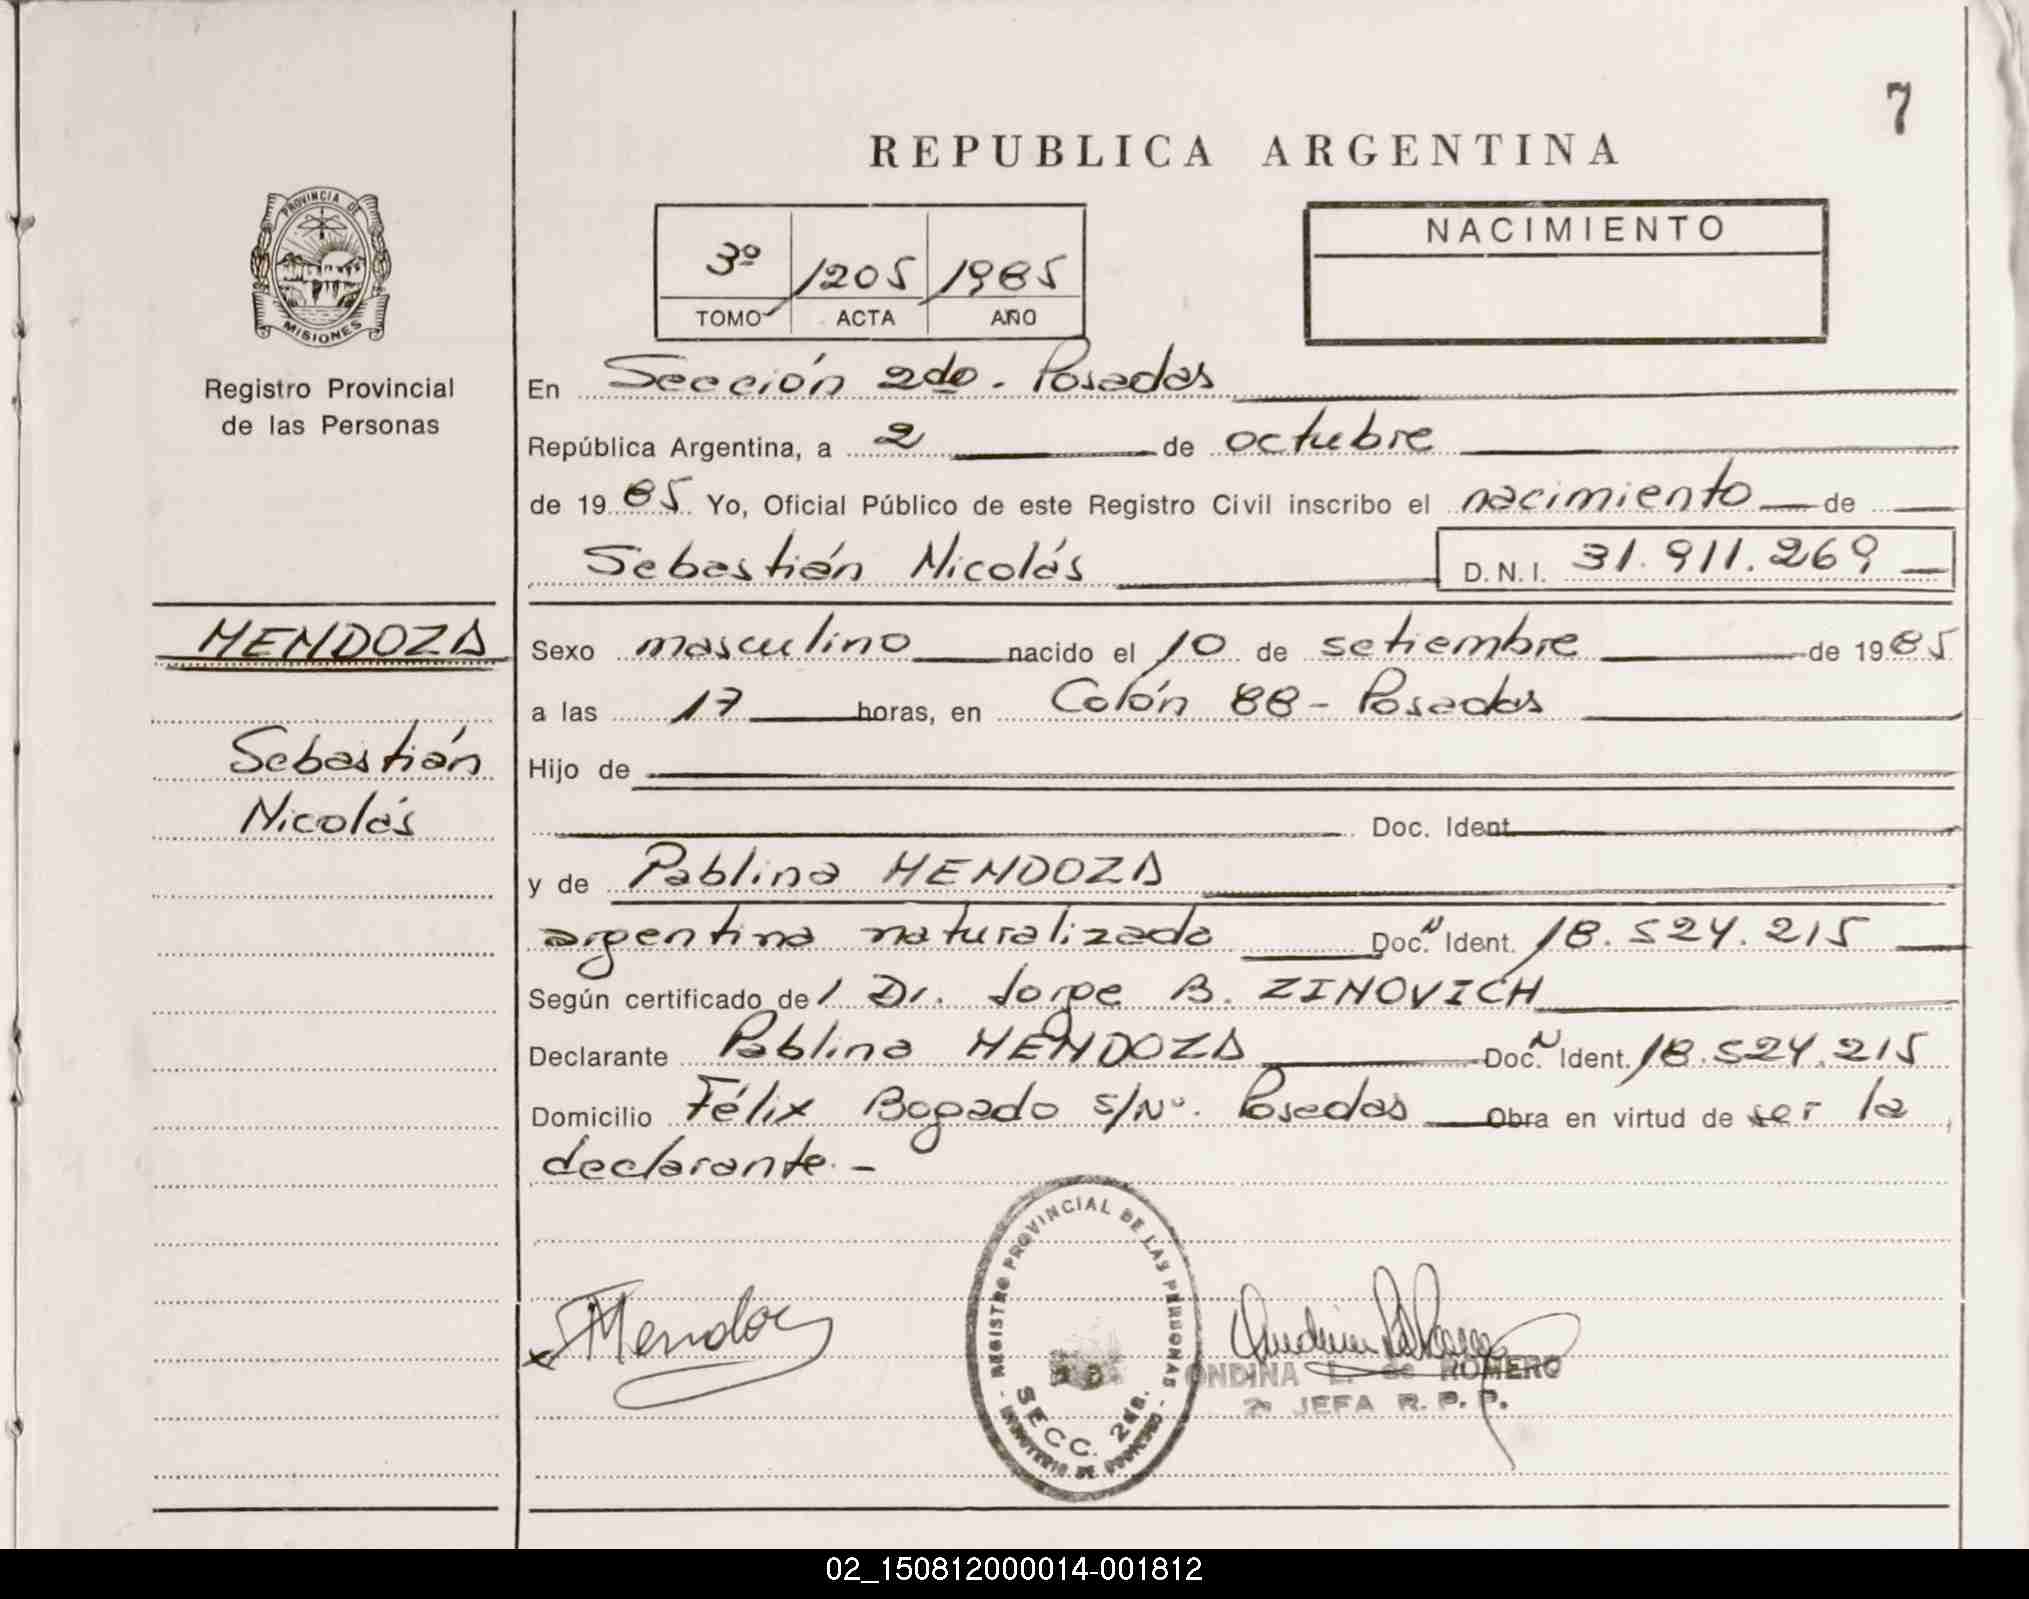 7
REPUBLICA ARGENTINA
PROVINCIA DE
MISIONES
Registro Provincial
de las Personas
3º 1205 1985
TOMO ACTA AÑO
NACIMIENTO
En Sección 2da. Posadas
República Argentina, a 2 de octubre
de 1985 Yo, Oficial Público de este Registro Civil inscribo el nacimiento de
Sebastián Nicolás D.N.I. 31.911.269
MENDOZA
Sebastián
Nicolás
Sexo masculino nacido el 10 de setiembre de 1985
a las 17 horas, en Colón 88 - Posadas
Hijo de
Doc. Ident.
y de Pablina MENDOZA
argentina naturalizada Doc. N Ident. 18.524.215
Según certificado de l Dr. Jorge B. ZINOVICH
Declarante Pablina MENDOZA Doc. N Ident. 18.524.215
Domicilio Félix Bogado s/Nº. Posadas Obra en virtud de ser la
declarante.-
x Mendoz
REGISTRO PROVINCIAL DE LAS PERSONAS
SECC. 2da.
MINISTERIO DE GOBIERNO
ONDINA L. de ROMERO
2a JEFA R. P. P.
02_150812000014-001812